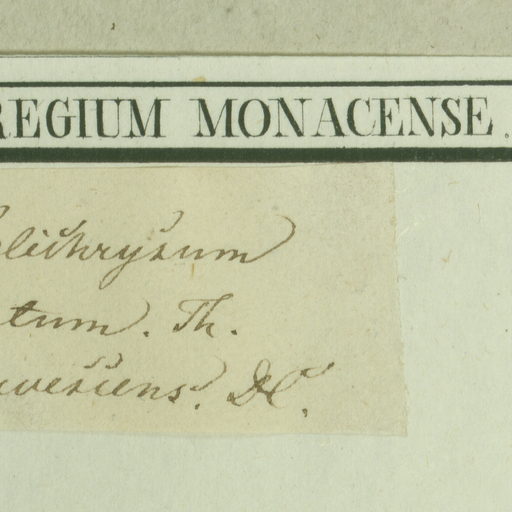 REGIUM MONACENSE.
elichrysum
tum. Th.
wescens. DC.